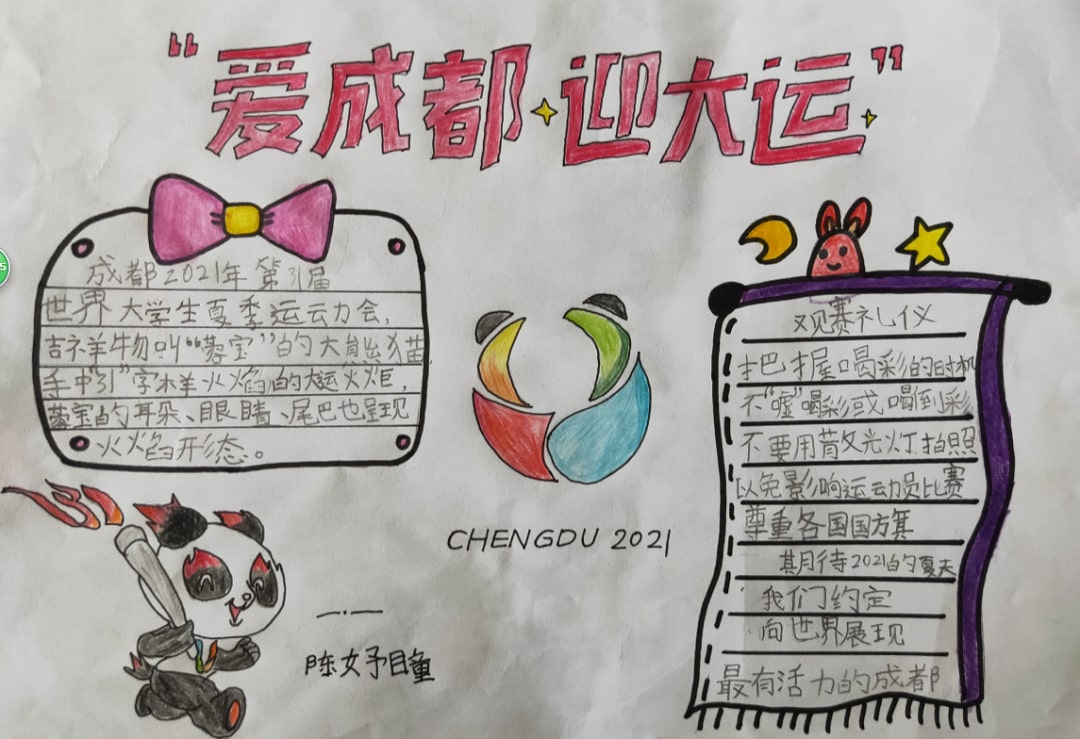 “爱成都·迎大运”
成都2021年第31届
世界大学生夏季运动会,
吉祥物叫“蓉宝”的大熊猫
手中“31”字样火焰的大运火炬,
蓉宝的耳朵、眼睛、尾巴也呈现
火焰形态。
CHENGDU 2021
一·一
陈好瞳
观赛礼仪
把握喝彩的时机
不“嘘”喝彩或喝到彩
不要用散光灯拍照
以免影响运动员比赛
尊重各国国方旗
期待2021的夏天
我们约定
向世界展现
最有活力的成都